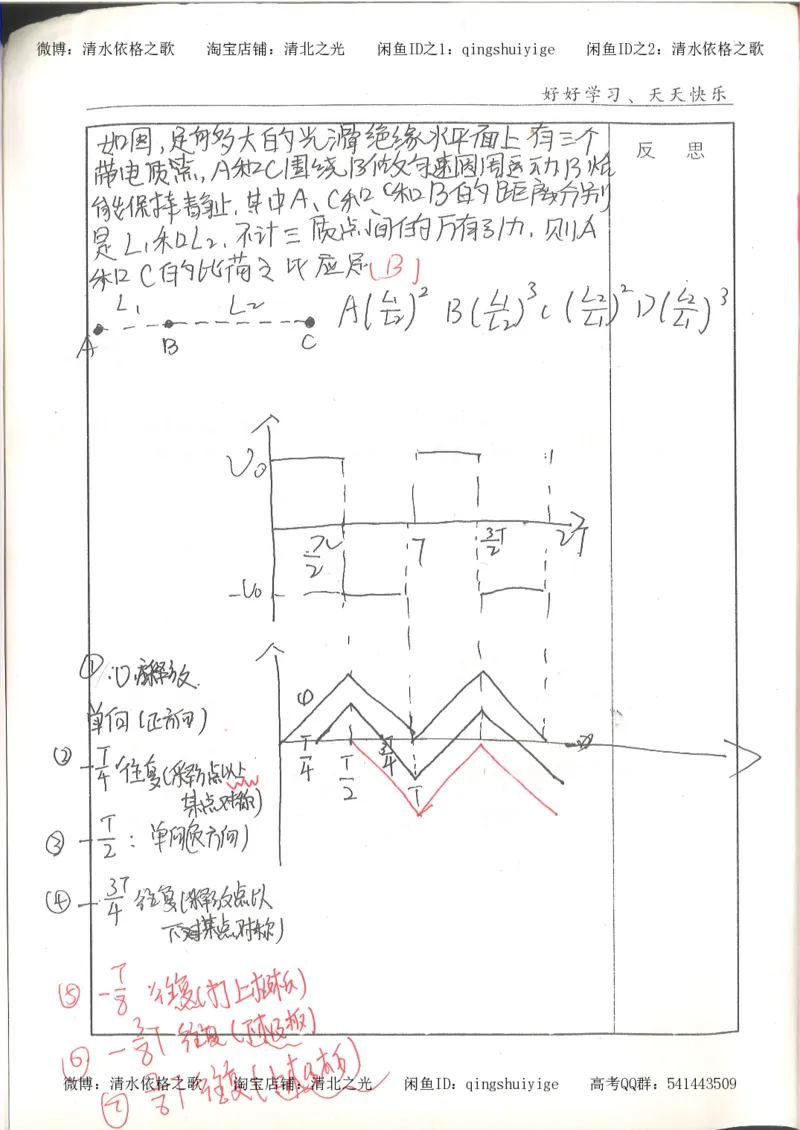 微博：清水依格之歌 淘宝店铺：清北之光 闲鱼ID之1：qingshuiyige 闲鱼ID之2：清水依格之歌
好好学习、天天快乐
反 思
如图，足够大的光滑绝缘水平面上有三个
带电质点，A和C围绕B做匀速圆周运动B恰
能保持静止，其中A、C和B的距离分别
是L₁和L₂，不计三质点间的万有引力，则A
和C的比荷之比应是(B)
L₁ L₂
A(L₁/L₂)² B(L₁/L₂)³ C(L₂/L₁)² D(L₂/L₁)³
A B C
U₀
T/2 T 3T/2 2T
-U₀
① :0 释放
单向(正方向)
② -T/4 往复(释放点以上
某点对称)
③ -T/2 : 单向负方向)
④ -3T/4 往复(释放点以
下对某点对称)
T/4 T/2 T
⑤ -T/8 往复(打上极板)
⑥ -3/8T 往复(下极板)
⑦ 往复(上极板)
微博：清水依格之歌 淘宝店铺：清北之光 闲鱼ID：qingshuiyige 高考QQ群：541443509